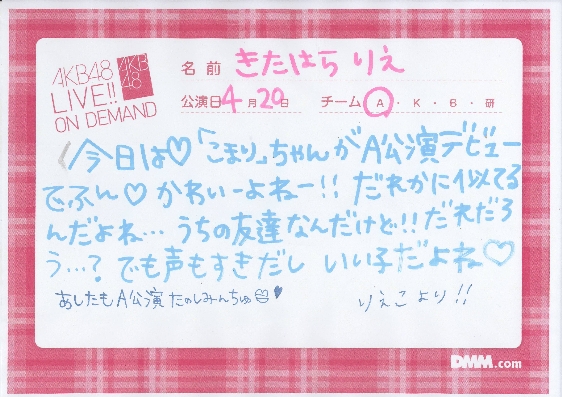 AKB48
LIVE!!
ON DEMAND
AKB
48
名前 きたはら りえ
公演日 4月20日 チーム A・K・B・研
今日は♡「こまり」ちゃんがA公演デビュー
でふん♡ かわいーよねー!! だれかに似てる
んだよね… うちの友達なんだけど!! だれだろ
う…? でも声もすきだし いい子だよね♡
あしたもA公演たのしみんちゅ♥
りえこより!!
DMM.com